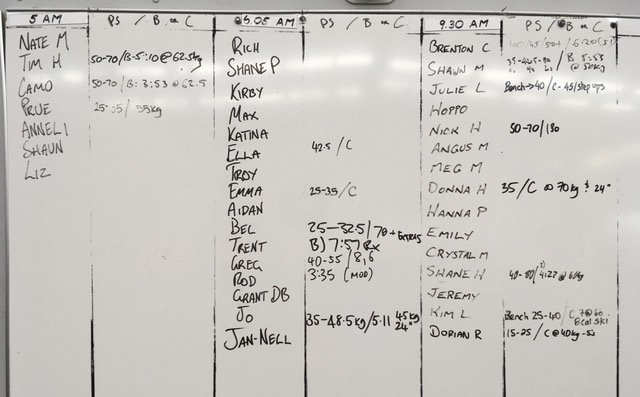 5 AM
PS / B or C
NATE M
TIM H 50-70/B-5:10 @ 62.5kg
CAMO 50-70/B: 3:53 @ 62.5
PRUE 25-35/35kg
ANNELI
SHAUN
LIZ
6.05 AM
PS / B or C
RICH
SHANE P
KIRBY
MAX
KATINA
ELLA 42.5 / C
TROY
EMMA 25-35 / C
AIDAN
BEL 25-32.5/70 + EXTRAS
TRENT B) 7:57 RX
GREG 40-55 / 8,6
ROD 3:35 (MOD)
GRANT DB
JO 35-48.5kg/5.11 45kg 24"
JAN-NELL
9.30 AM
PS / B or C
BRENTON C
SHAUN M B 5:53 @ 50kg
JULIE L Bench→40 / C-45/step ups
HOPPO
NICK H 50-70/130
ANGUS M
MEG M
DONNA H 35/C @ 70kg 24"
HANNA P
EMILY
CRYSTAL M
SHANE H
JEREMY
KIM L Bench 25-40 / C
DORIAN R 15-25 / C @ 40kg